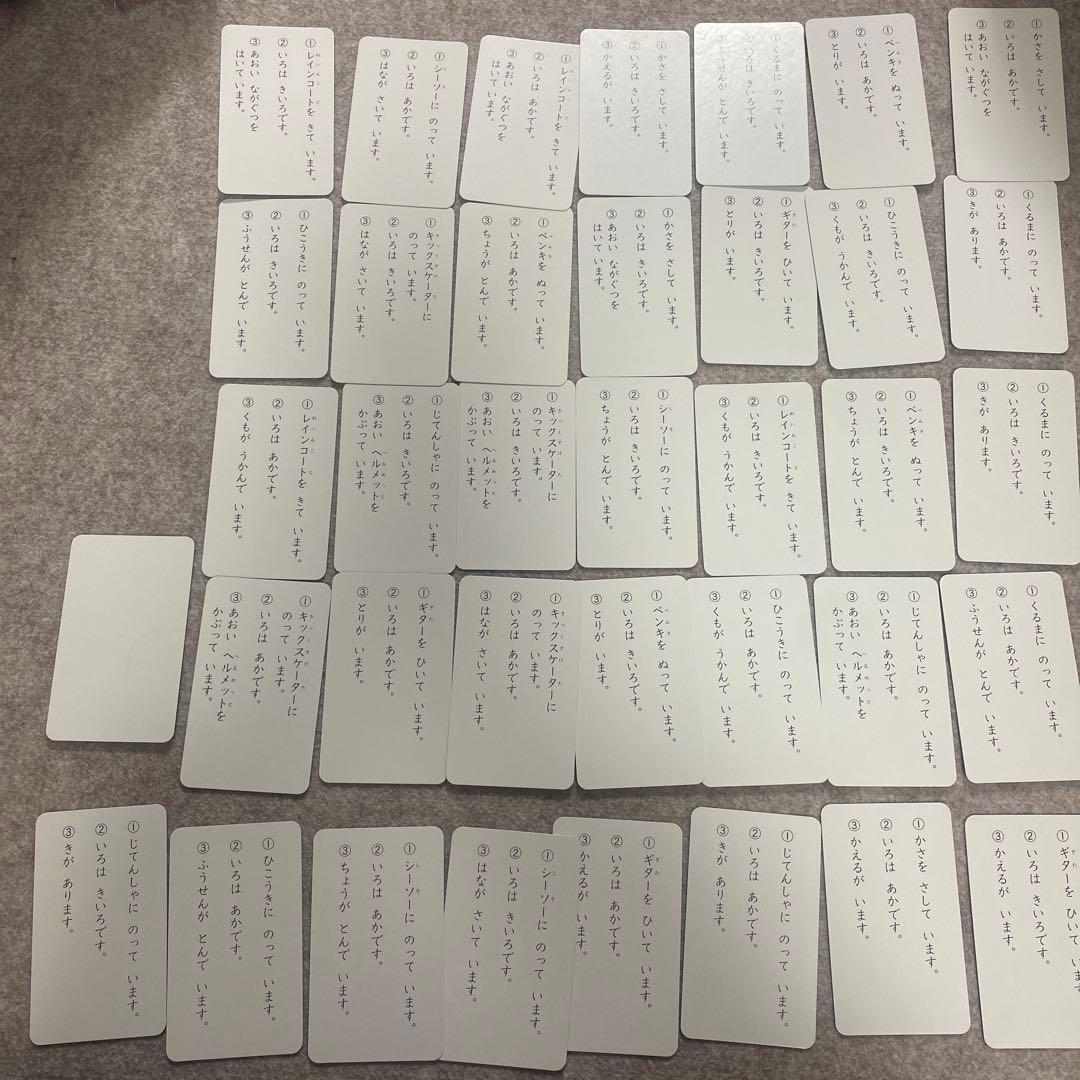 ①レインコートを きて います。
②いろは きいろです。
③あおい ながぐつを
はいて います。
①シーソーに のって います。
②いろは あかです。
③はなが さいて います。
①レインコートを きて います。
②いろは あかです。
③あおい ながぐつを
はいて います。
①かさを さして います。
②いろは きいろです。
③かえるが います。
①くるまに のって います。
②いろは きいろです。
③ふうせんが とんで います。
①ペンキを ぬって います。
②いろは あかです。
③とりが います。
①かさを さして います。
②いろは あかです。
③あおい ながぐつを
はいて います。
①ひこうきに のって います。
②いろは きいろです。
③ふうせんが とんで います。
①キックスケーターに
のって います。
②いろは きいろです。
③はなが さいて います。
①ペンキを ぬって います。
②いろは あかです。
③ちょうが とんで います。
①かさを さして います。
②いろは きいろです。
③あおい ながぐつを
はいて います。
①ギターを ひいて います。
②いろは きいろです。
③とりが います。
①ひこうきに のって います。
②いろは きいろです。
③くもが うかんで います。
①くるまに のって います。
②いろは あかです。
③きが あります。
①レインコートを きて います。
②いろは あかです。
③くもが うかんで います。
①じてんしゃに のって います。
②いろは きいろです。
③あおい ヘルメットを
かぶって います。
①キックスケーターに
のって います。
②いろは きいろです。
③あおい ヘルメットを
かぶって います。
①シーソーに のって います。
②いろは きいろです。
③ちょうが とんで います。
①レインコートを きて います。
②いろは きいろです。
③くもが うかんで います。
①ペンキを ぬって います。
②いろは きいろです。
③ちょうが とんで います。
①くるまに のって います。
②いろは きいろです。
③きが あります。
①キックスケーターに
のって います。
②いろは あかです。
③あおい ヘルメットを
かぶって います。
①ギターを ひいて います。
②いろは あかです。
③とりが います。
①キックスケーターに
のって います。
②いろは あかです。
③はなが さいて います。
①ペンキを ぬって います。
②いろは きいろです。
③とりが います。
①ひこうきに のって います。
②いろは あかです。
③くもが うかんで います。
①じてんしゃに のって います。
②いろは あかです。
③あおい ヘルメットを
かぶって います。
①くるまに のって います。
②いろは あかです。
③ふうせんが とんで います。
①じてんしゃに のって います。
②いろは きいろです。
③きが あります。
①ひこうきに のって います。
②いろは あかです。
③ふうせんが とんで います。
①シーソーに のって います。
②いろは あかです。
③ちょうが とんで います。
①シーソーに のって います。
②いろは きいろです。
③はなが さいて います。
①ギターを ひいて います。
②いろは あかです。
③かえるが います。
①じてんしゃに のって います。
②いろは あかです。
③きが あります。
①かさを さして います。
②いろは あかです。
③かえるが います。
①ギターを ひいて います
②いろは きいろです。
③かえるが います。